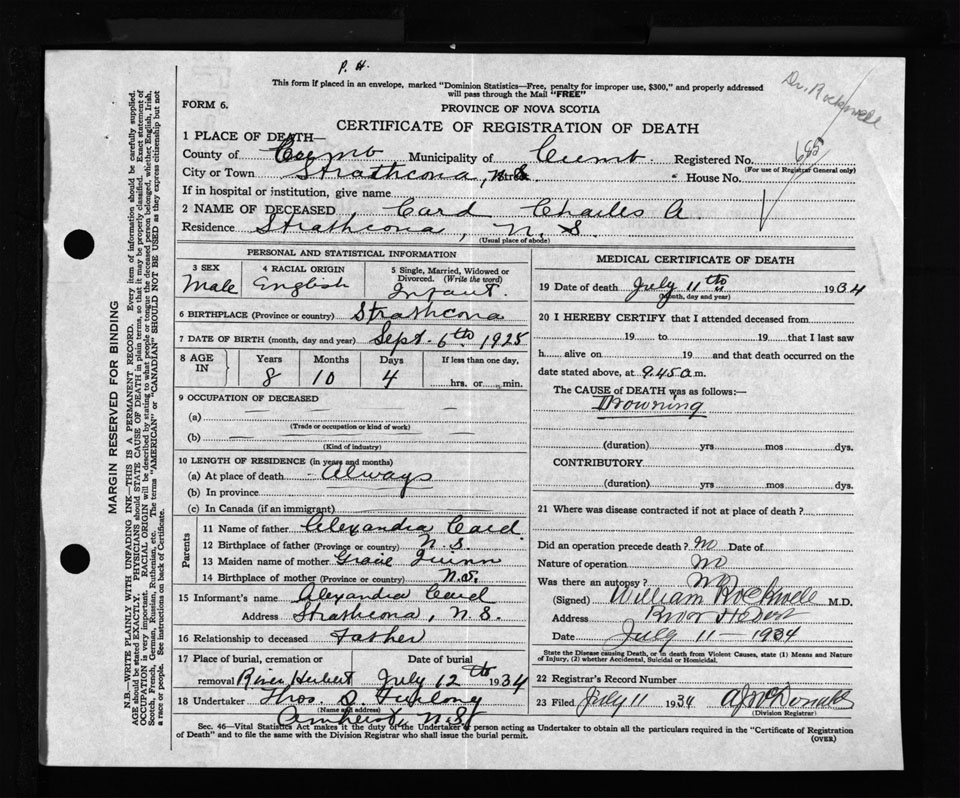 P. H.
Dr. Rockwell
This form if placed in an envelope, marked "Dominion Statistics—Free, penalty for improper use, $300," and properly addressed
will pass through the Mail "FREE"
FORM 6.
PROVINCE OF NOVA SCOTIA
CERTIFICATE OF REGISTRATION OF DEATH
685
1 PLACE OF DEATH—
County of Cumb Municipality of Cumb. Registered No.
(For use of Registrar General only)
City or Town Strathcona, N.S. Street House No.
If in hospital or institution, give name
2 NAME OF DECEASED Card Charles A.
Residence Strathcona, N. S.
(Usual place of abode)
PERSONAL AND STATISTICAL INFORMATION
3 SEX Male
4 RACIAL ORIGIN English
5 Single, Married, Widowed or Divorced. (Write the word) Infant.
6 BIRTHPLACE (Province or country) Strathcona
7 DATE OF BIRTH (month, day and year) Sept. 6th 1925
8 AGE IN Years Months Days If less than one day,
8 10 4 hrs. or min.
9 OCCUPATION OF DECEASED
(a)
(Trade or occupation or kind of work)
(b)
(Kind of industry)
10 LENGTH OF RESIDENCE (in years and months)
(a) At place of death Always
(b) In province
(c) In Canada (if an immigrant)
Parents
11 Name of father Alexandra Card
12 Birthplace of father (Province or country) N. S.
13 Maiden name of mother Gracie Quinn
14 Birthplace of mother (Province or country) N.S.
15 Informant's name Alexandra Card
Address Strathcona, N. S.
16 Relationship to deceased Father
17 Place of burial, cremation or Date of burial
removal River Hebert July 12th 1934
18 Undertaker Thos. S. Furlong
(Name and address)
Amherst, N.S.
MEDICAL CERTIFICATE OF DEATH
19 Date of death July 11th 1934
(Month, day and year)
20 I HEREBY CERTIFY that I attended deceased from
19 to 19 that I last saw
h alive on 19 and that death occurred on the
date stated above, at 9.45 a. m.
The CAUSE of DEATH was as follows:—
Drowning
(duration) yrs mos dys.
CONTRIBUTORY
(duration) yrs mos dys.
21 Where was disease contracted if not at place of death?
Did an operation precede death? no Date of
Nature of operation no
Was there an autopsy? no
(Signed) William Rockwell M.D.
Address River Hebert
Date July 11 — 1934
State the Disease causing Death, or in death from Violent Causes, state (1) Means and Nature of Injury, (2) whether Accidental, Suicidal or Homicidal.
22 Registrar's Record No.
23 Filed July 11 1934 A J McDonald
(Division Registrar)
Sec. 46—Vital Statistics Act makes it the duty of the Undertaker or person acting as Undertaker to obtain all the particulars required in the "Certificate of Registration
of Death" and to file the same with the Division Registrar who shall issue the burial permit.
(OVER)
MARGIN RESERVED FOR BINDING
N.B.—WRITE PLAINLY WITH UNFADING INK—THIS IS A PERMANENT RECORD. Every item of information should be carefully supplied.
AGE should be stated EXACTLY. PHYSICIANS should STATE CAUSE OF DEATH in plain terms, so that it may be properly classified. Exact statement of
OCCUPATION is very important. RACIAL ORIGIN will be described by stating to what people or tongue the deceased person belonged, whether English, Irish,
Scotch, French, German, Russian, Ruthenian, etc. The terms "AMERICAN" or "CANADIAN" SHOULD NOT BE USED as they express citizenship but not
a race or people. See instructions on back of Certificate.